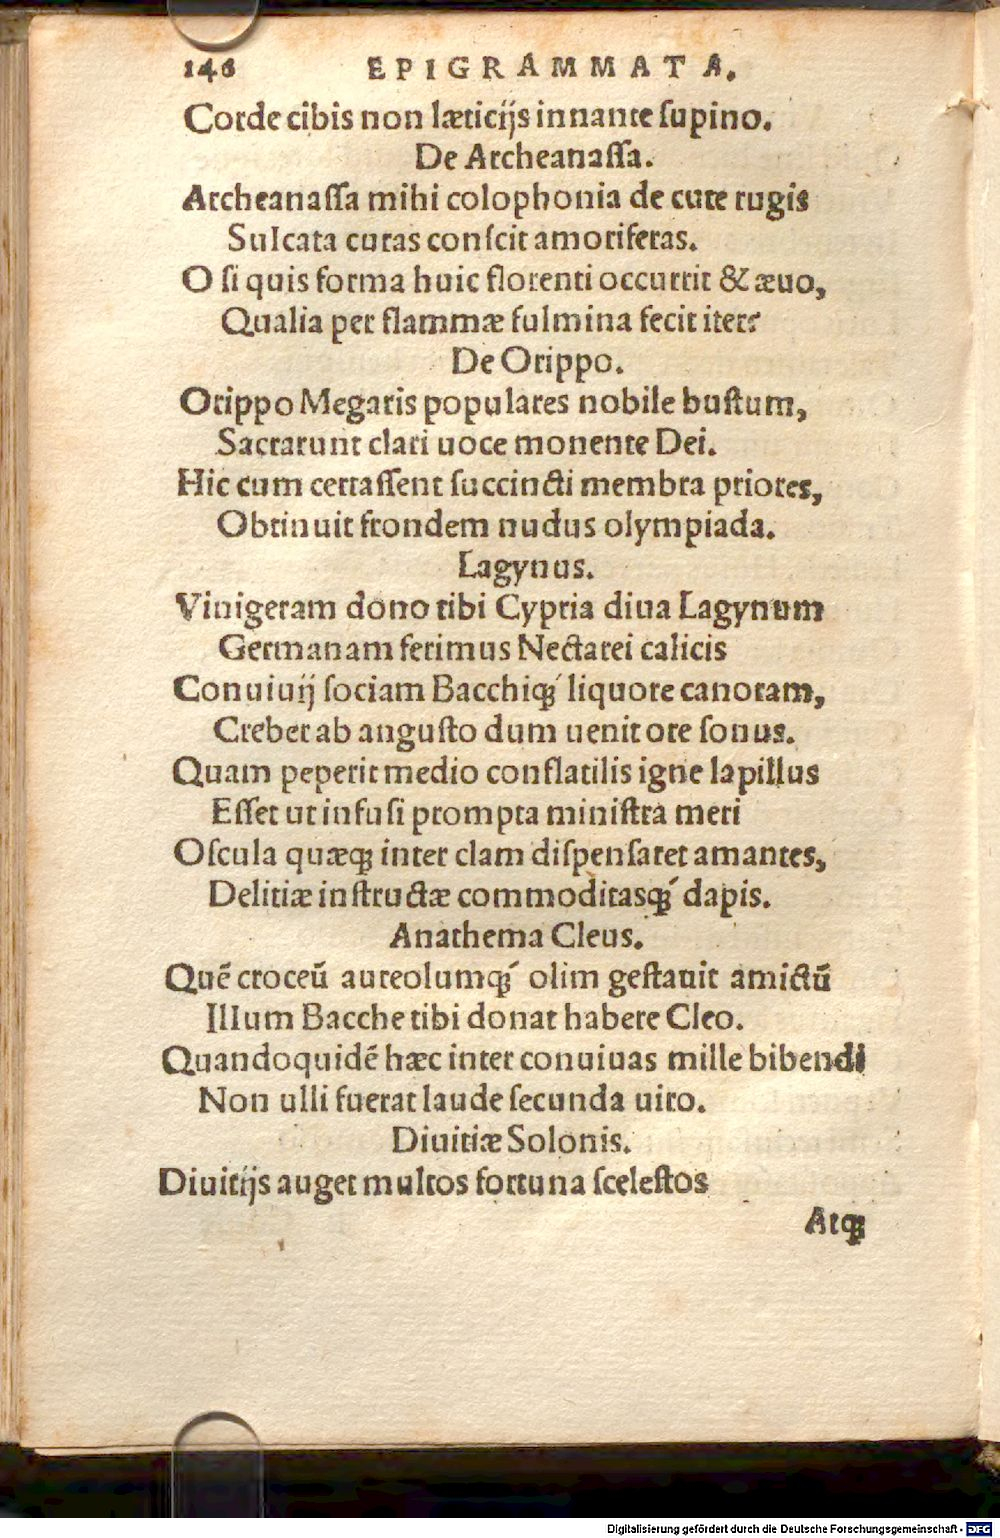 146 EPIGRAMMATA.
Corde cibis non læticijs innante ſupino.
De Archeanaſſa.
Archeanaſſa mihi colophonia de cute rugis
Sulcata curas conſcit amoriferas.
O ſi quis forma huic florenti occurrit & æuo,
Qualia per flammæ fulmina fecit iter?
De Orippo.
Orippo Megaris populares nobile buſtum,
Sacrarunt clari uoce monente Dei.
Hic cum certaſſent ſuccincti membra priores,
Obtinuit frondem nudus olympiada.
Lagynus.
Vinigeram dono tibi Cypria diua Lagynum
Germanam ferimus Nectarei calicis
Conuiuij ſociam Bacchiq́; liquore canoram,
Creber ab anguſto dum uenit ore ſonus.
Quam peperit medio conflatilis igne lapillus
Eſſet ut infuſi prompta miniſtra meri
Oſcula quæq; inter clam diſpenſaret amantes,
Delitiæ inſtructæ commoditasq́; dapis.
Anathema Cleus.
Quẽ croceũ aureolumq́; olim geſtauit amictũ
Illum Bacche tibi donat habere Cleo.
Quandoquidẽ hæc inter conuiuas mille bibendi
Non ulli fuerat laude ſecunda uiro.
Diuitiæ Solonis.
Diuitijs auget multos fortuna ſceleſtos
Atq;
Digitalisierung gefördert durch die Deutsche Forschungsgemeinschaft - DFG